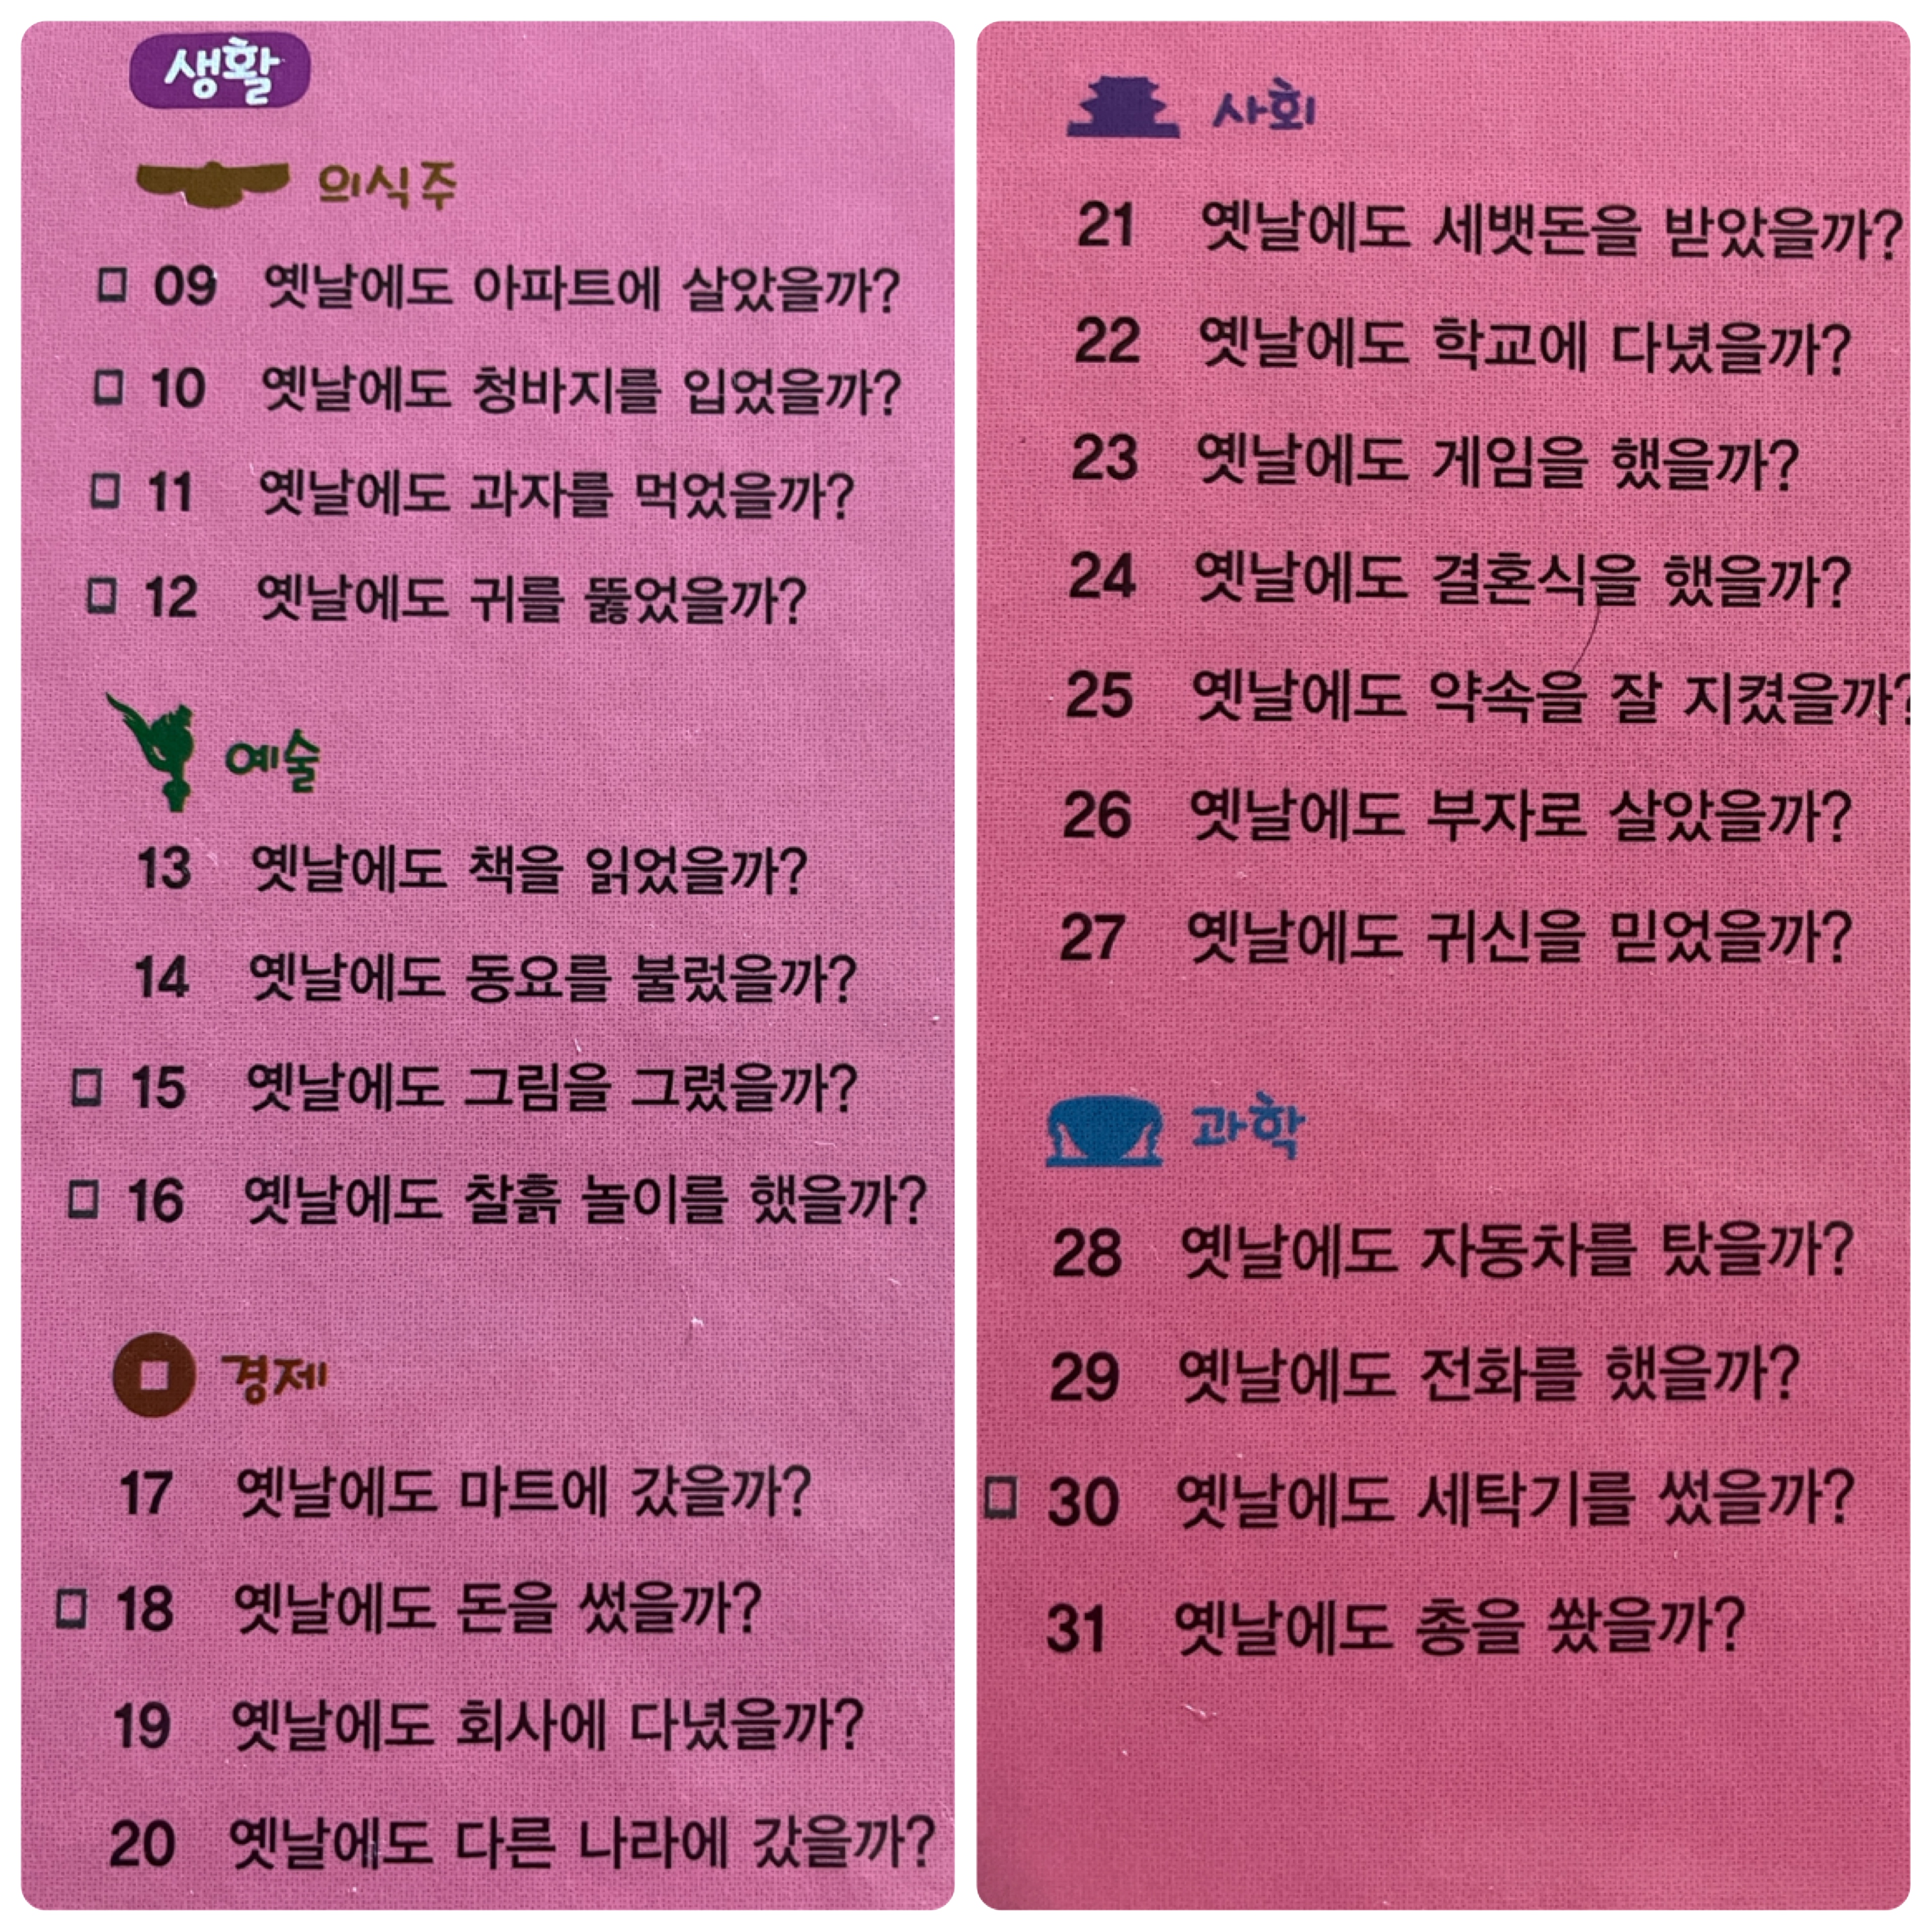 생활
의식주
□ 09 옛날에도 아파트에 살았을까?
□ 10 옛날에도 청바지를 입었을까?
□ 11 옛날에도 과자를 먹었을까?
□ 12 옛날에도 귀를 뚫었을까?
예술
13 옛날에도 책을 읽었을까?
14 옛날에도 동요를 불렀을까?
□ 15 옛날에도 그림을 그렸을까?
□ 16 옛날에도 찰흙 놀이를 했을까?
경제
17 옛날에도 마트에 갔을까?
□ 18 옛날에도 돈을 썼을까?
19 옛날에도 회사에 다녔을까?
20 옛날에도 다른 나라에 갔을까?
사회
21 옛날에도 세뱃돈을 받았을까?
22 옛날에도 학교에 다녔을까?
23 옛날에도 게임을 했을까?
24 옛날에도 결혼식을 했을까?
25 옛날에도 약속을 잘 지켰을까?
26 옛날에도 부자로 살았을까?
27 옛날에도 귀신을 믿었을까?
과학
28 옛날에도 자동차를 탔을까?
29 옛날에도 전화를 했을까?
□ 30 옛날에도 세탁기를 썼을까?
31 옛날에도 총을 쐈을까?